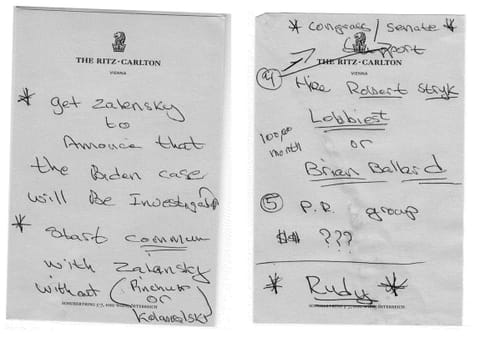 THE RITZ-CARLTON
VIENNA
* get Zalensky
to
Annouce that
the Biden case
will Be Investigated
* Start commun
with Zalansky
without (Pinchuk
or
Kolamoilski)
SCHUBERTRING 5-7, 1010 WIEN, ÖSTERREICH
* Congrass / Senate *
Support
THE RITZ-CARLTON
VIENNA
Hire Robert Stryk
Lobbiest
100po
month
or
Brian Ballard
5 P.R. group
$$$ ???
* Rudy *
SCHUBERTRING 5-7, 1010 WIEN, ÖSTERREICH